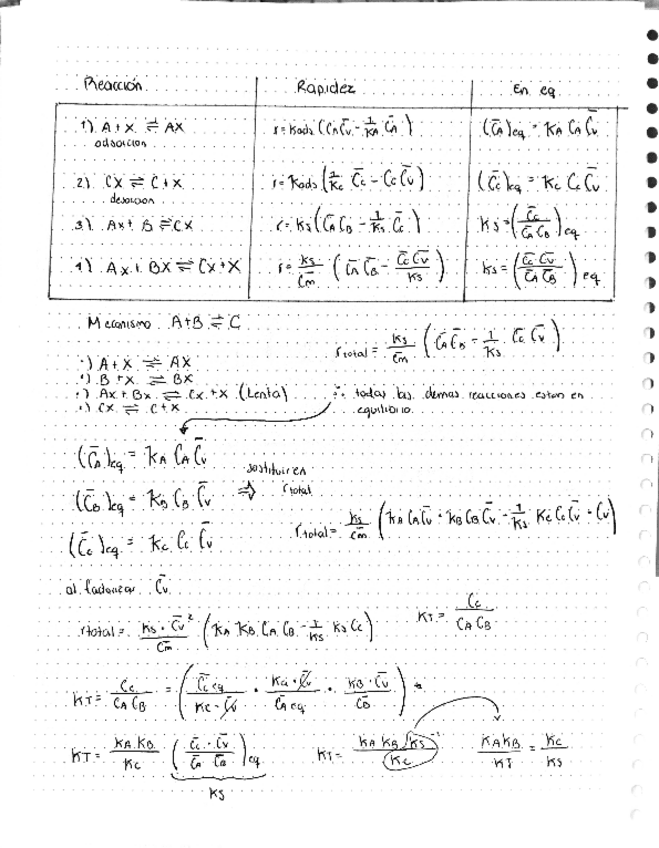 Reacción Rapidez En eq
1) A + X ⇌ AX r = Kads (CA C̄v - 1/KA C̄A) (C̄A)eq = KA CA C̄v
adsorcion
2) CX ⇌ C + X r = Kads (1/Kc C̄c - Cc C̄v) (C̄c)eq = Kc Cc C̄v
desorcion
3) AX + B ⇌ CX r = Ks (C̄A CB - 1/Ks C̄c) Ks = (C̄c / C̄A CB)eq
4) AX + BX ⇌ CX + X r = Ks/C̄m (C̄A C̄B - C̄c C̄v / Ks) Ks = (C̄c C̄v / C̄A C̄B)eq
Mecanismo A+B ⇌ C
rtotal = Ks/C̄m (C̄A C̄B - 1/Ks C̄c C̄v)
·) A + X ⇌ AX
·) B + X ⇌ BX
·) AX + BX ⇌ CX + X (Lenta) ∴ todas las demas reacciones estan en
·) CX ⇌ C + X equilibrio
(C̄A)eq = KA CA C̄v
(C̄B)eq = KB CB C̄v ⇒ sustituir en rtotal
(C̄c)eq = Kc Cc C̄v
rtotal = Ks/C̄m (KA CA C̄v · KB CB C̄v - 1/Ks Kc Cc C̄v · C̄v)
al factorizar C̄v
rtotal = Ks · C̄v² / C̄m (KA KB CA CB - 1/Ks Kc Cc) KT = Cc / CA CB
KT = Cc / CA CB = (C̄c eq / Kc · C̄v · KA · C̄v / C̄A eq · KB · C̄v / C̄B)
KT = KA · KB / Kc (C̄c · C̄v / C̄A C̄B)eq KT = KA KB Ks / Kc KA KB / KT = Kc / Ks
Ks